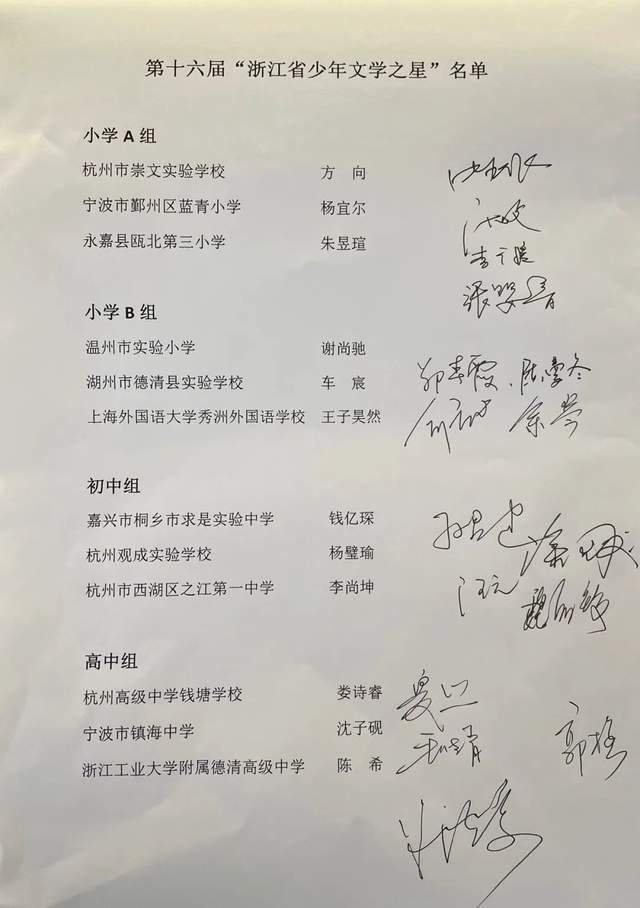 第十六届“浙江省少年文学之星”名单
小学 A 组
杭州市崇文实验学校 方 向
宁波市鄞州区蓝青小学 杨宜尔
永嘉县瓯北第三小学 朱昱瑄
小学 B 组
温州市实验小学 谢尚驰
湖州市德清县实验学校 车 宸
上海外国语大学秀洲外国语学校 王子昊然
初中组
嘉兴市桐乡市求是实验中学 钱亿琛
杭州观成实验学校 杨璧瑜
杭州市西湖区之江第一中学 李尚坤
高中组
杭州高级中学钱塘学校 娄诗睿
宁波市镇海中学 沈子砚
浙江工业大学附属德清高级中学 陈 希